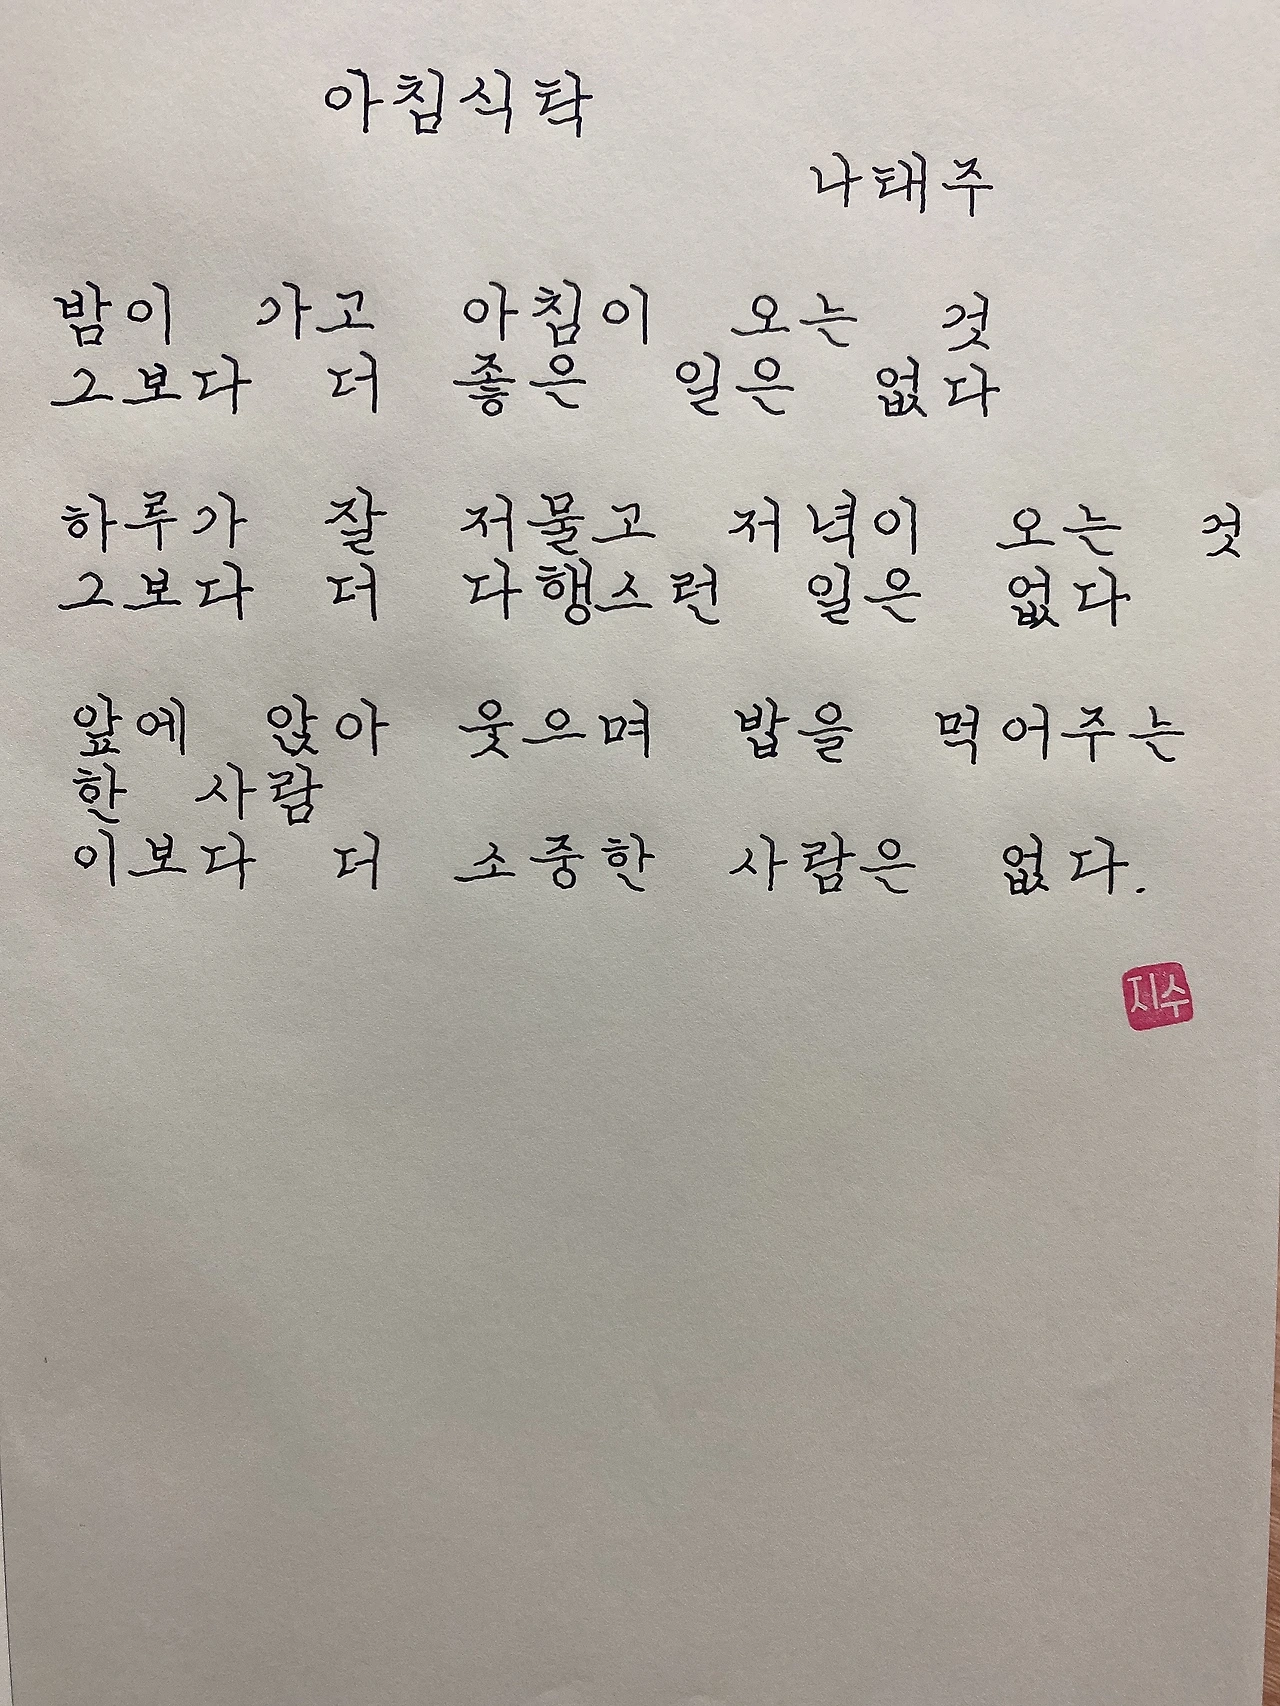 아침식탁
나태주
밤이 가고 아침이 오는 것
그보다 더 좋은 일은 없다
하루가 잘 저물고 저녁이 오는 것
그보다 더 다행스런 일은 없다
앞에 앉아 웃으며 밥을 먹어주는
한 사람
이보다 더 소중한 사람은 없다.
지수